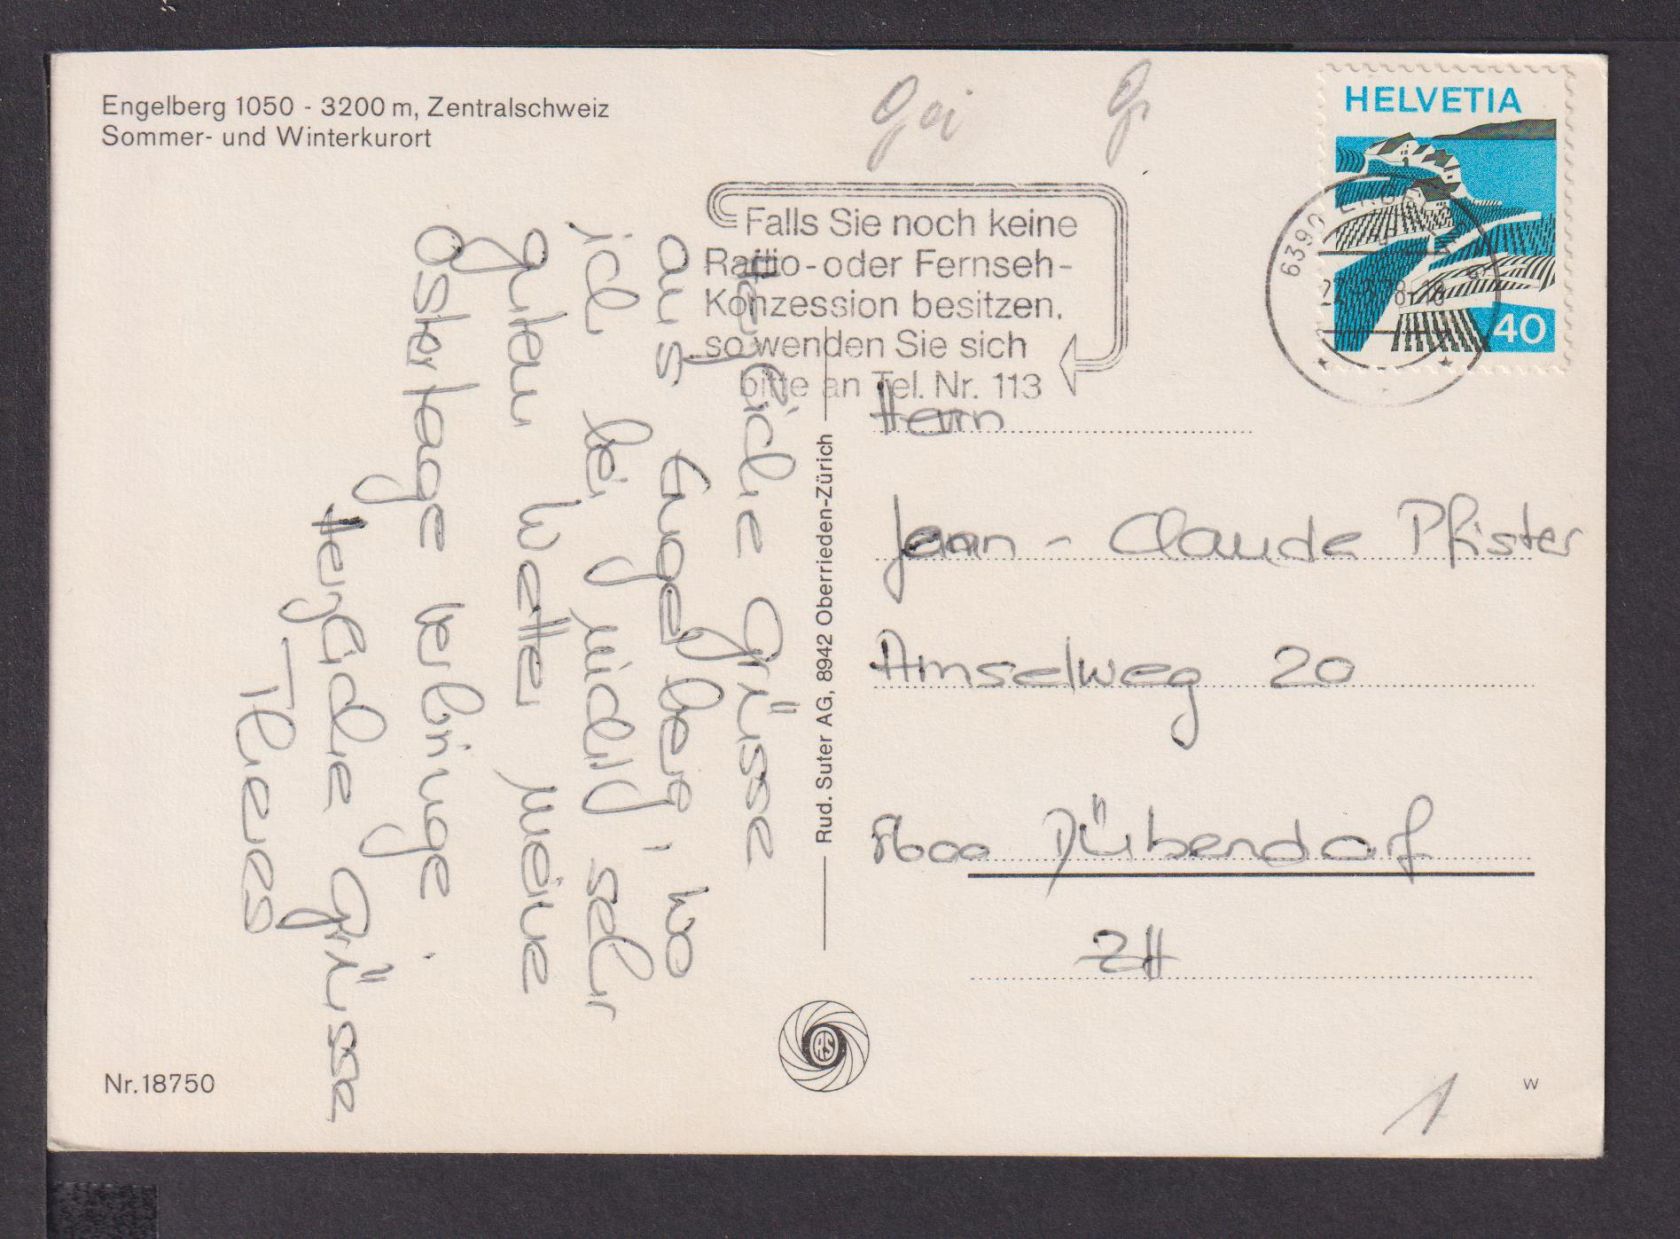 Engelberg 1050 - 3200 m, Zentralschweiz
Sommer- und Winterkurort
HELVETIA
40
6390
Falls Sie noch keine
Radio- oder Fernseh-
Konzession besitzen,
so wenden Sie sich
bitte an Tel. Nr. 113
Herzliche Grüsse
aus Engelberg, wo
ich bei nicht sehr
guten Wetter meine
Ostertage verbringe.
Herzliche Grüsse
Theres
Rud. Suter AG, 8942 Oberrieden-Zürich
Herrn
Jean-Claude Pfister
Amselweg 20
8600 Dübendorf
ZH
RS
Nr. 18750
W
1